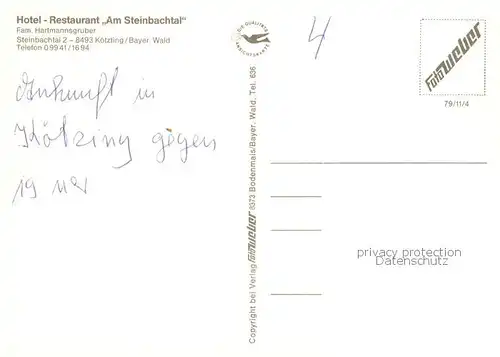 Hotel - Restaurant „Am Steinbachtal“
Fam. Hartmannsgruber
Steinbachtal 2 – 8493 Kötzting/Bayer. Wald
Telefon 0 99 41/16 94
Ankunft in
Kötzing gegen
19 Uhr
DIE QUALITÄTS
ANSICHTSKARTE
Copyright bei Verlag Foto WEBER 8373 Bodenmais/Bayer. Wald, Tel. 636
4
Foto WEBER
79/11/4
privacy protection
Datenschutz